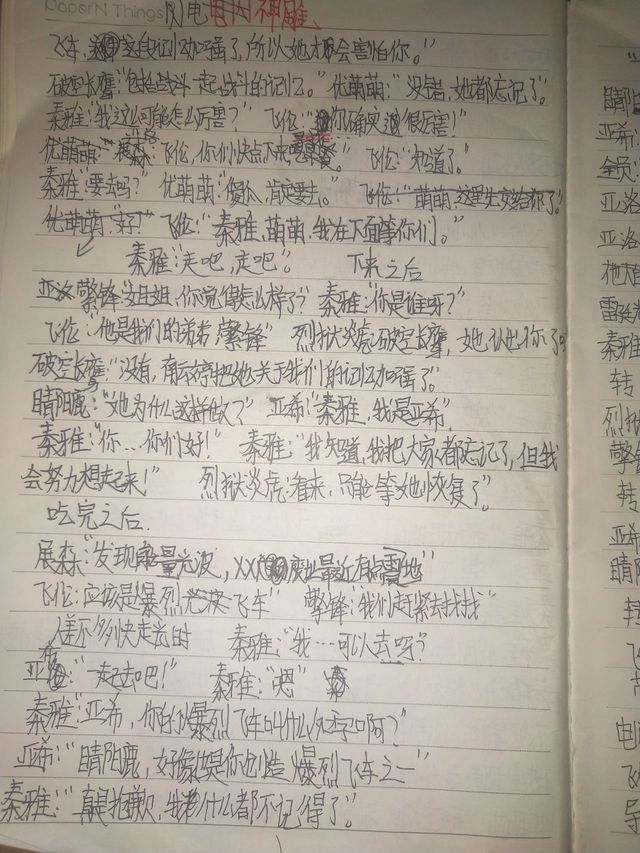 DaperN Things 闪电 电闪神雕、
飞车，这段记忆加强了，所以她才会害怕你。"
破空长鹰："包括战斗一起战斗的记忆。" 优萌萌："没错，她都忘记了。
秦雅："我这么可能怎么厉害？" 飞伦："你确实很厉害！
优萌萌："展森飞伦，你们快点下来。" 飞伦："知道了。"
秦雅："要去吗？" 优萌萌："肯定要去。 飞伦："萌萌，这里先交给你了。"
优萌萌"好！" 飞伦："秦雅，萌萌，我在下面等你们。"
秦雅："走吧，走吧"。 下来之后
擎锋"姐姐，你觉得怎么样了？ 秦雅："你是谁呀？"
飞伦："他是我们的弟弟，擎锋" 烈狱炎虎："破空长鹰，她认出你了
破空长鹰："没有，把她关于我们的记忆加强了。"
晴阳鹿："她为什么这样做？" 亚希："秦雅，我是亚希"。
秦雅："你…你们好！ 秦雅："我知道，我把大家都忘记了，但我
会努力想起来！" 烈狱炎虎："看来，只能等她恢复了"。
吃完之后.
展森："发现能量光波，XX废业最近有雷地"
飞伦："应该是爆烈飞车" 擎锋："我们赶紧去找找"
人差不多快走去时 秦雅："我…可以去呀？
亚希："一起去吧！" 秦雅："嗯"
秦雅："亚希，你的爆烈飞车叫什么名字啊？"
亚希："晴阳鹿，好像是你创造爆烈飞车之一"
秦雅："真是抱歉，我什么都不记得了。"
晴阳
亚希.
全员
亚洛
亚洛
秦雅
转
烈狱
擎锋
转
亚希
晴阳
转
飞
电
飞
导